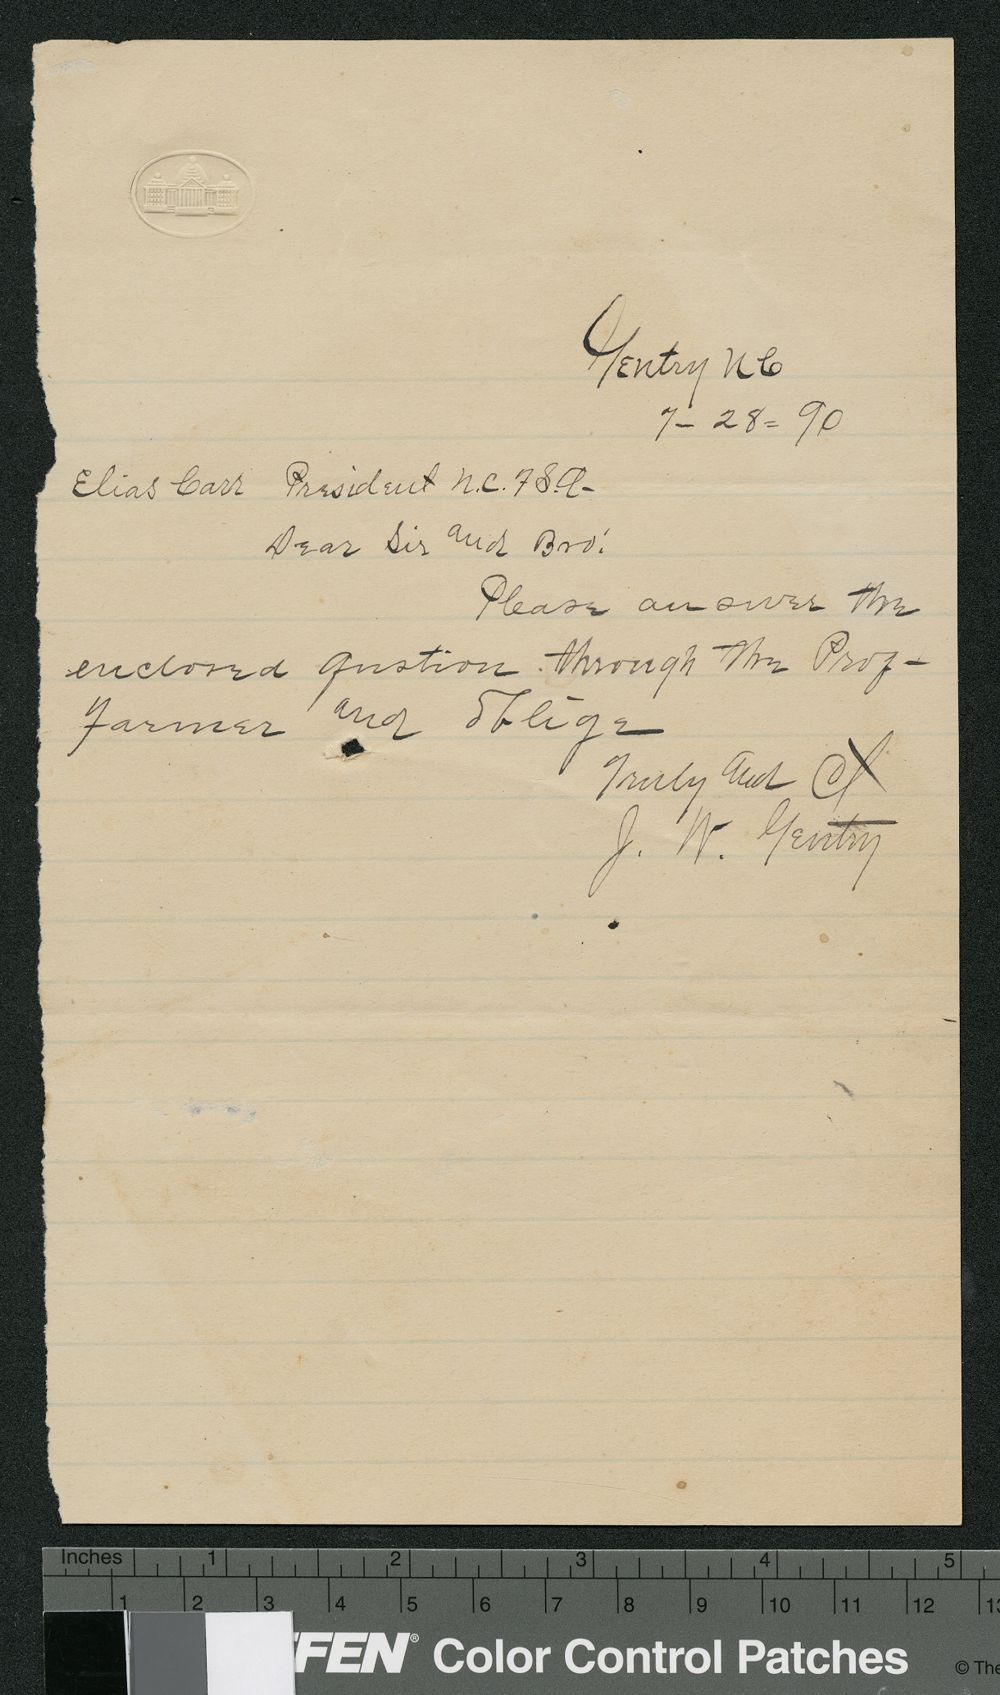 Gentry N C
7-28=90
Elias Carr President N.C.F.S.A-
Dear Sir and Bro:
Please answer the
enclosed qustion through the Prog-
Farmer and oblige
Truly and
J. W. Gentry
Inches 1 2 3 4 5
1 2 3 4 5 6 7 8 9 10 11 12
FFEN® Color Control Patches © The